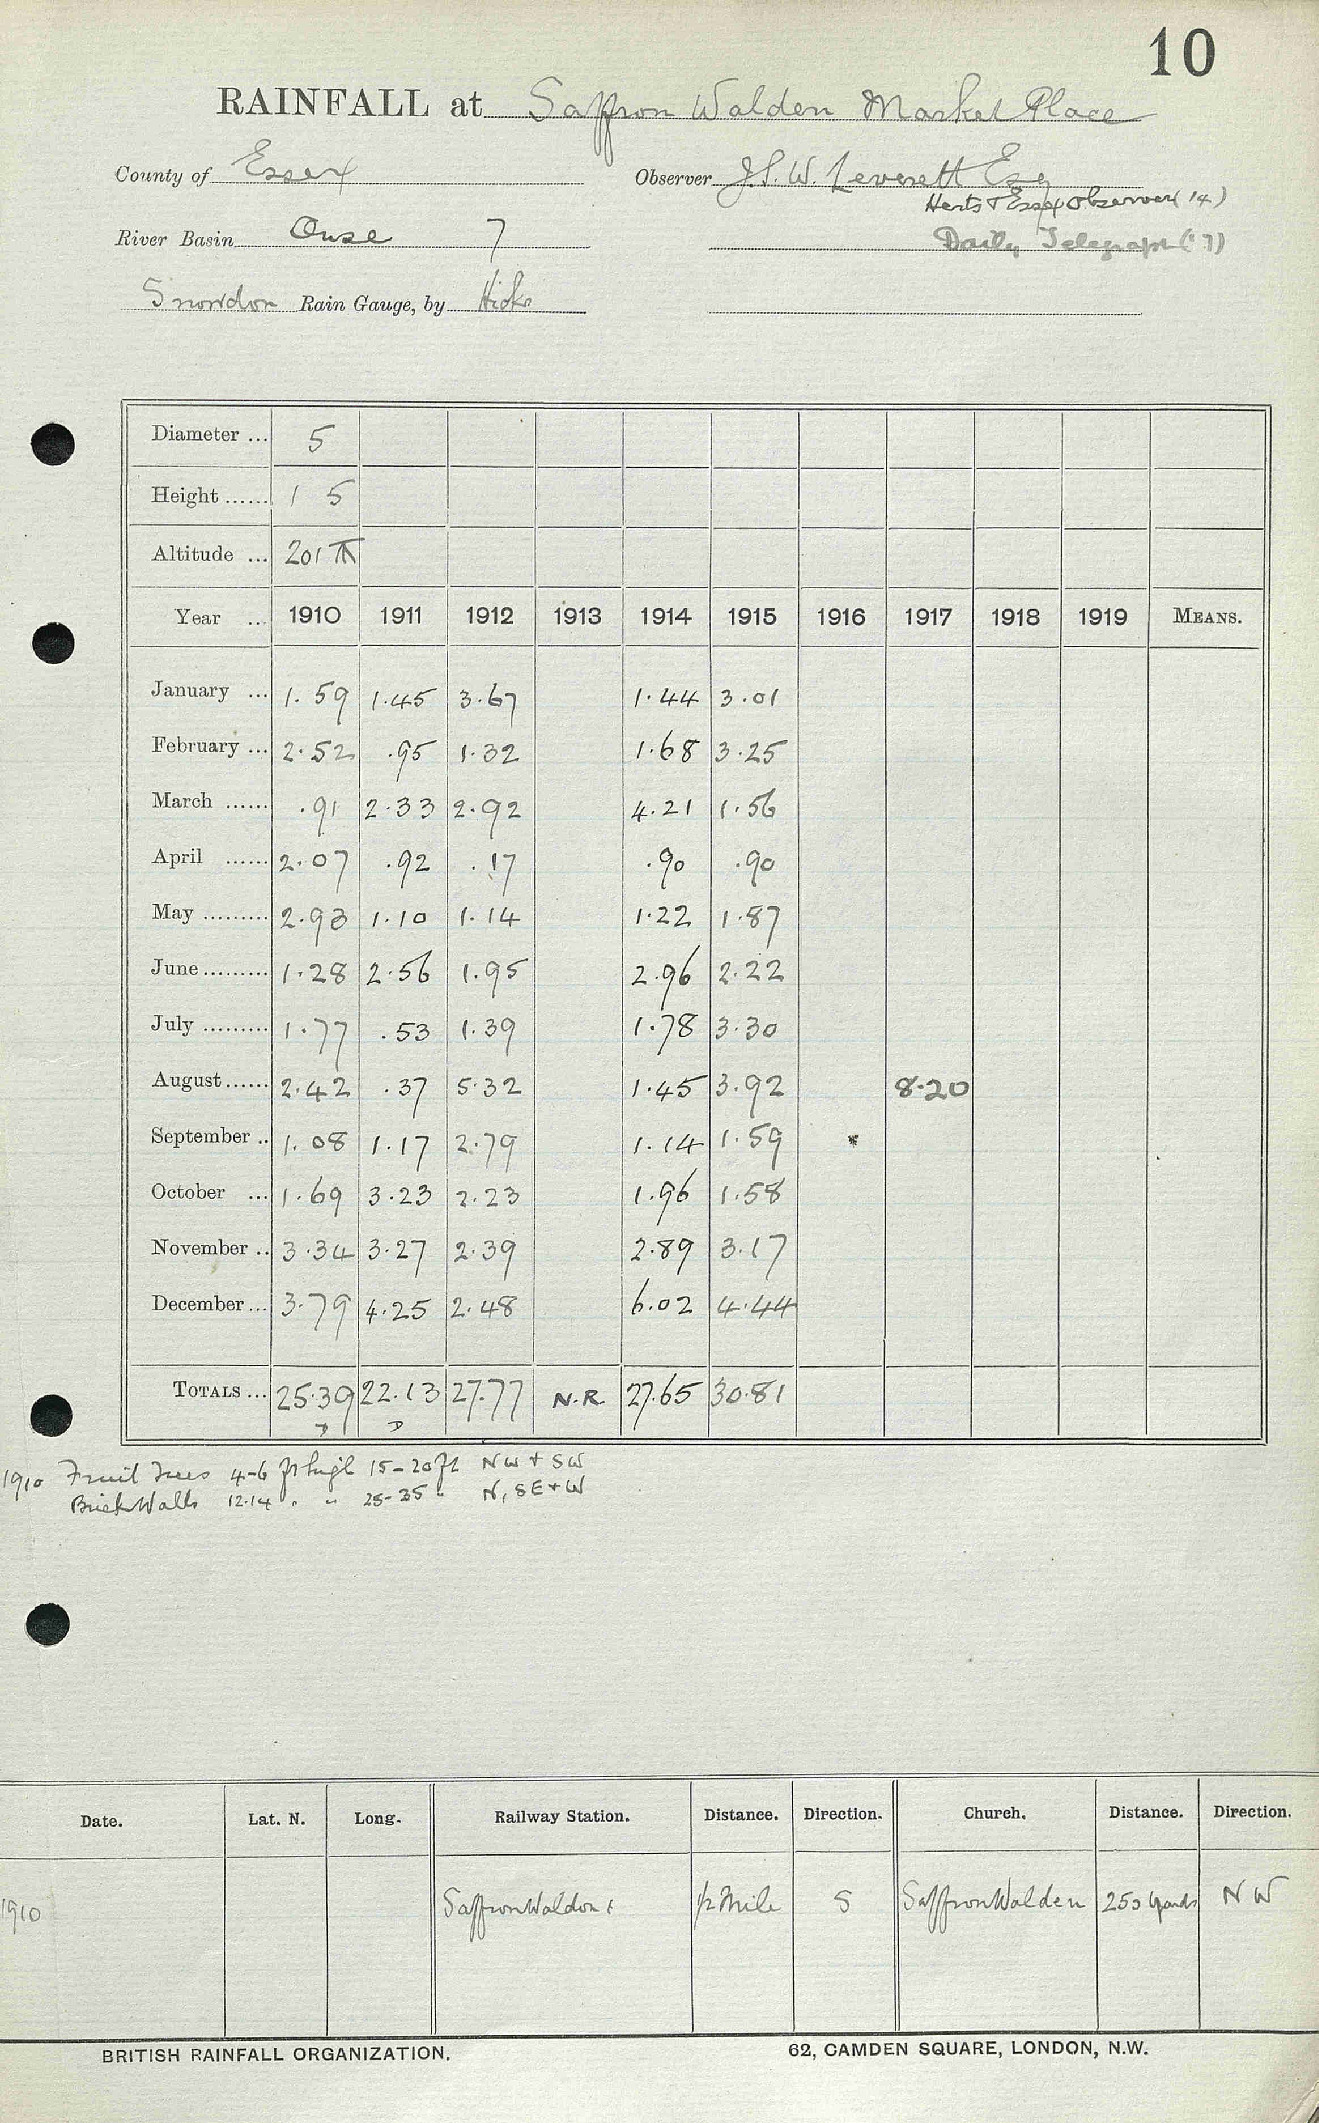 10
RAINFALL at Saffron Walden Market Place
County of Essex Observer J.S.W. Leverett Esq
Herts & Essex Observer ('14)
River Basin Ouse 7 Daily Telegraph ('17)
Snowdon Rain Gauge, by Hicks
Diameter ... 5
Height ...... 1 5
Altitude ... 201
Year ... 1910 1911 1912 1913 1914 1915 1916 1917 1918 1919 MEANS.
January ... 1.59 1.45 3.67 1.44 3.01
February ... 2.52 .95 1.32 1.68 3.25
March ...... .91 2.33 2.92 4.21 1.56
April ...... 2.07 .92 .17 .90 .90
May ......... 2.93 1.10 1.14 1.22 1.87
June ......... 1.28 2.56 1.95 2.96 2.22
July ......... 1.77 .53 1.39 1.78 3.30
August ...... 2.42 .37 5.32 1.45 3.92 8.20
September .. 1.08 1.17 2.79 1.14 1.59
October ... 1.69 3.23 2.23 1.96 1.58
November .. 3.34 3.27 2.39 2.89 3.17
December ... 3.79 4.25 2.48 6.02 4.44
TOTALS ... 25.39 22.13 27.77 N.R. 27.65 30.81
D D
1910 Fruit Trees 4-6 ft high 15-20 ft NW + SW
Brick Walls 12.14 " " 25-35 " N, SE + W
Date. Lat. N. Long. Railway Station. Distance. Direction. Church. Distance. Direction.
1910 Saffron Waldon ½ Mile S Saffron Walden 250 yards NW
BRITISH RAINFALL ORGANIZATION. 62, CAMDEN SQUARE, LONDON, N.W.